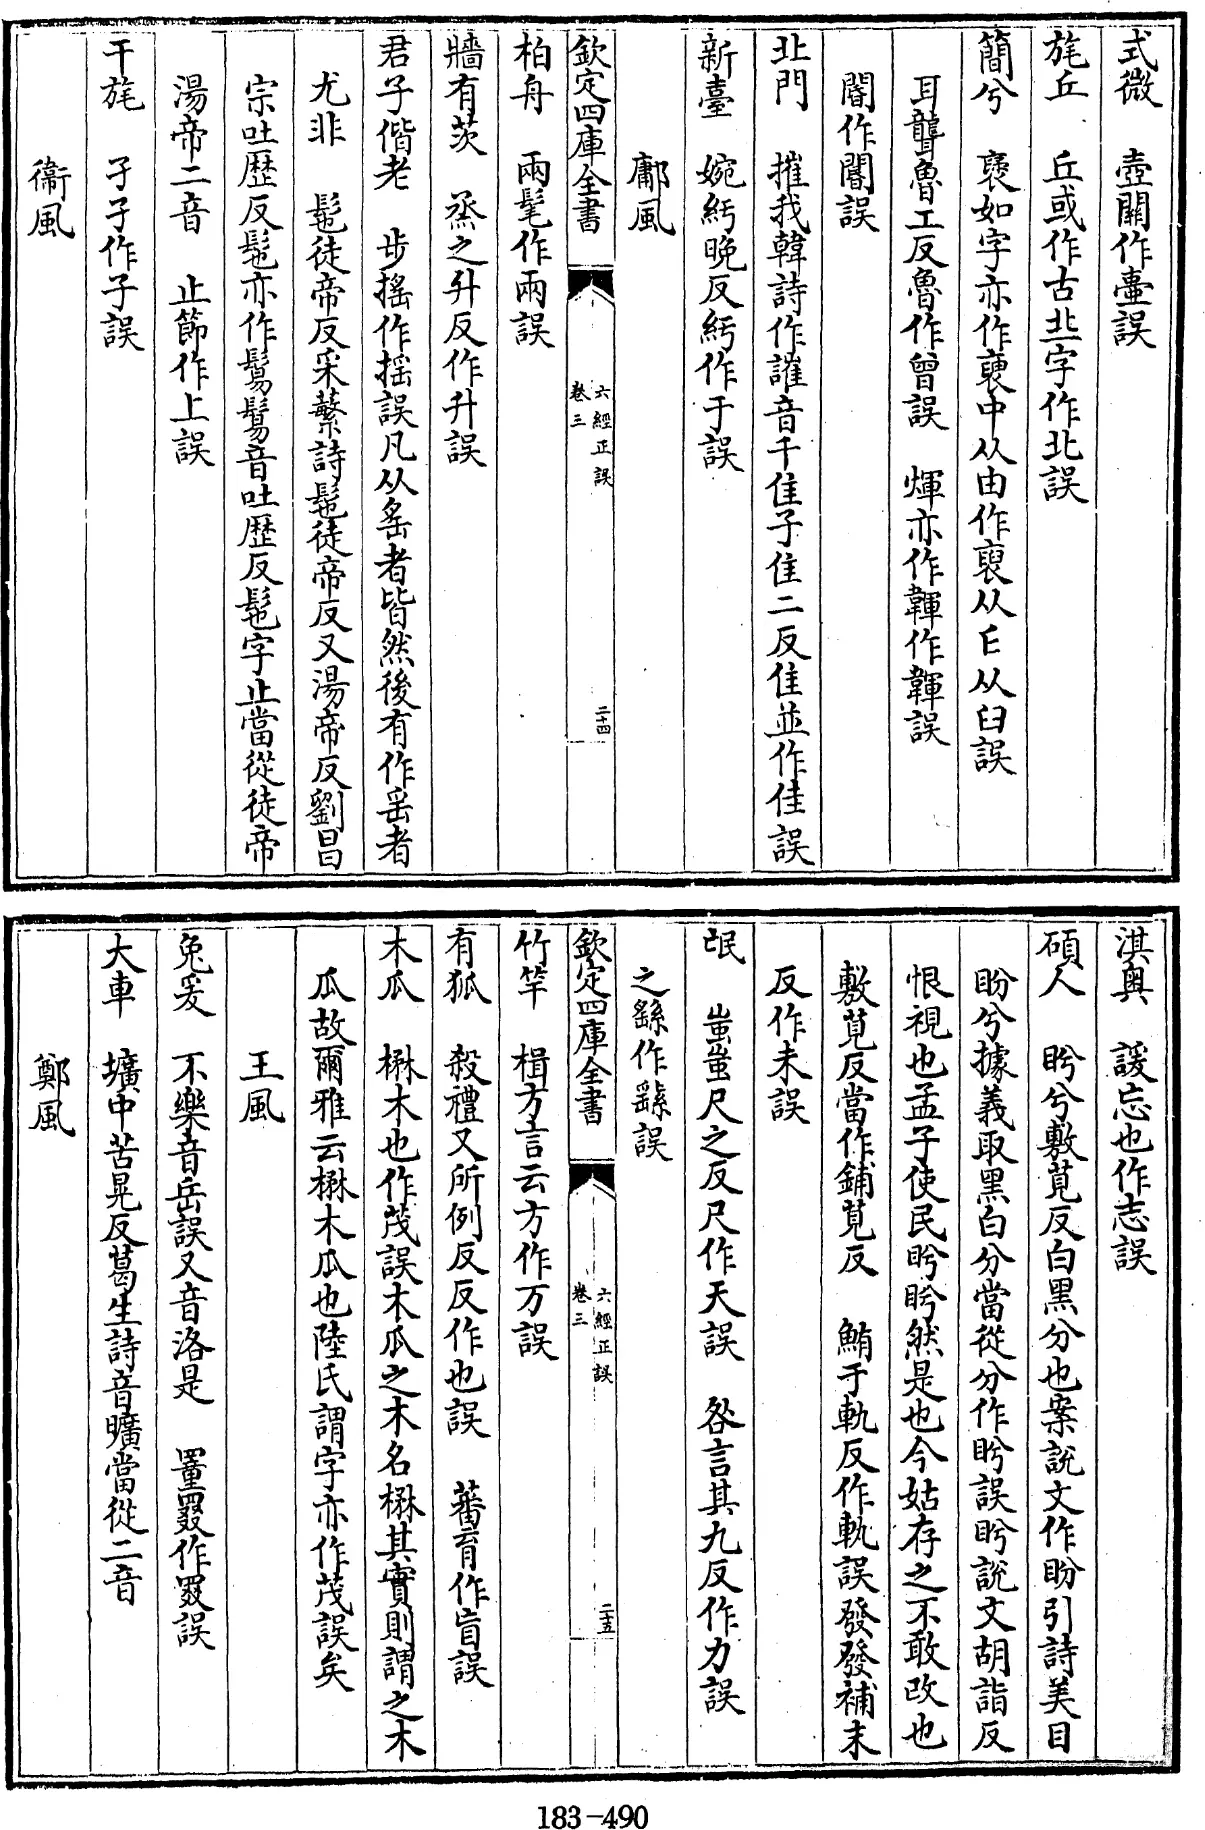 式微　壺關作臺誤
旄丘　丘或作古丠字作北誤
簡兮　褎如字亦作褏中从由作裒从𠂤从臼誤
耳聾魯工反魯作曾誤　煇亦作韗作韗誤
闇作闇誤
北門　摧我韓詩作讙音千隹子隹二反隹並作佳誤
新臺　婉紆晚反紆作于誤
鄘風
欽定四庫全書
六經正誤
卷三
二十四
柏舟　兩髦作兩誤
牆有茨　烝之升反作升誤
君子偕老　步搖作揺誤凡从䍃者皆然後有作䍃者
尤非　髢徒帝反采蘩詩髢徒帝反又湯帝反劉昌
宗吐歷反髢亦作鬄鬄音吐歷反髢字止當從徒帝
湯帝二音　止節作上誤
干旄　孑孑作子誤
衞風
淇奧　諼忘也作志誤
碩人　盻兮敷莧反白黑分也案說文作盼引詩美目
盼兮據義取黑白分當從分作盻誤盻說文胡詣反
恨視也孟子使民盻盻然是也今姑存之不敢改也
敷莧反當作鋪莧反　鮪于軌反作軌誤發發補末
反作未誤
氓　蚩蚩尺之反尺作天誤　咎言其九反作力誤
之繇作繇誤
欽定四庫全書
六經正誤
卷三
二十五
竹竿　楫方言云方作万誤
有狐　殺禮又所例反反作也誤　蕃育作盲誤
木瓜　楙木也作茂誤木瓜之木名楙其實則謂之木
瓜故爾雅云楙木瓜也陸氏謂字亦作茂誤矣
王風
兔爰　不樂音岳誤又音洛是　罿罬作罬誤
大車　壙中苦晃反葛生詩音曠當從二音
鄭風
183-490